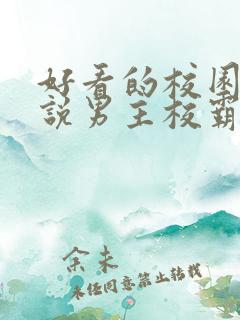 好看的校园
說男主校霸
余未
未经同意禁止转载